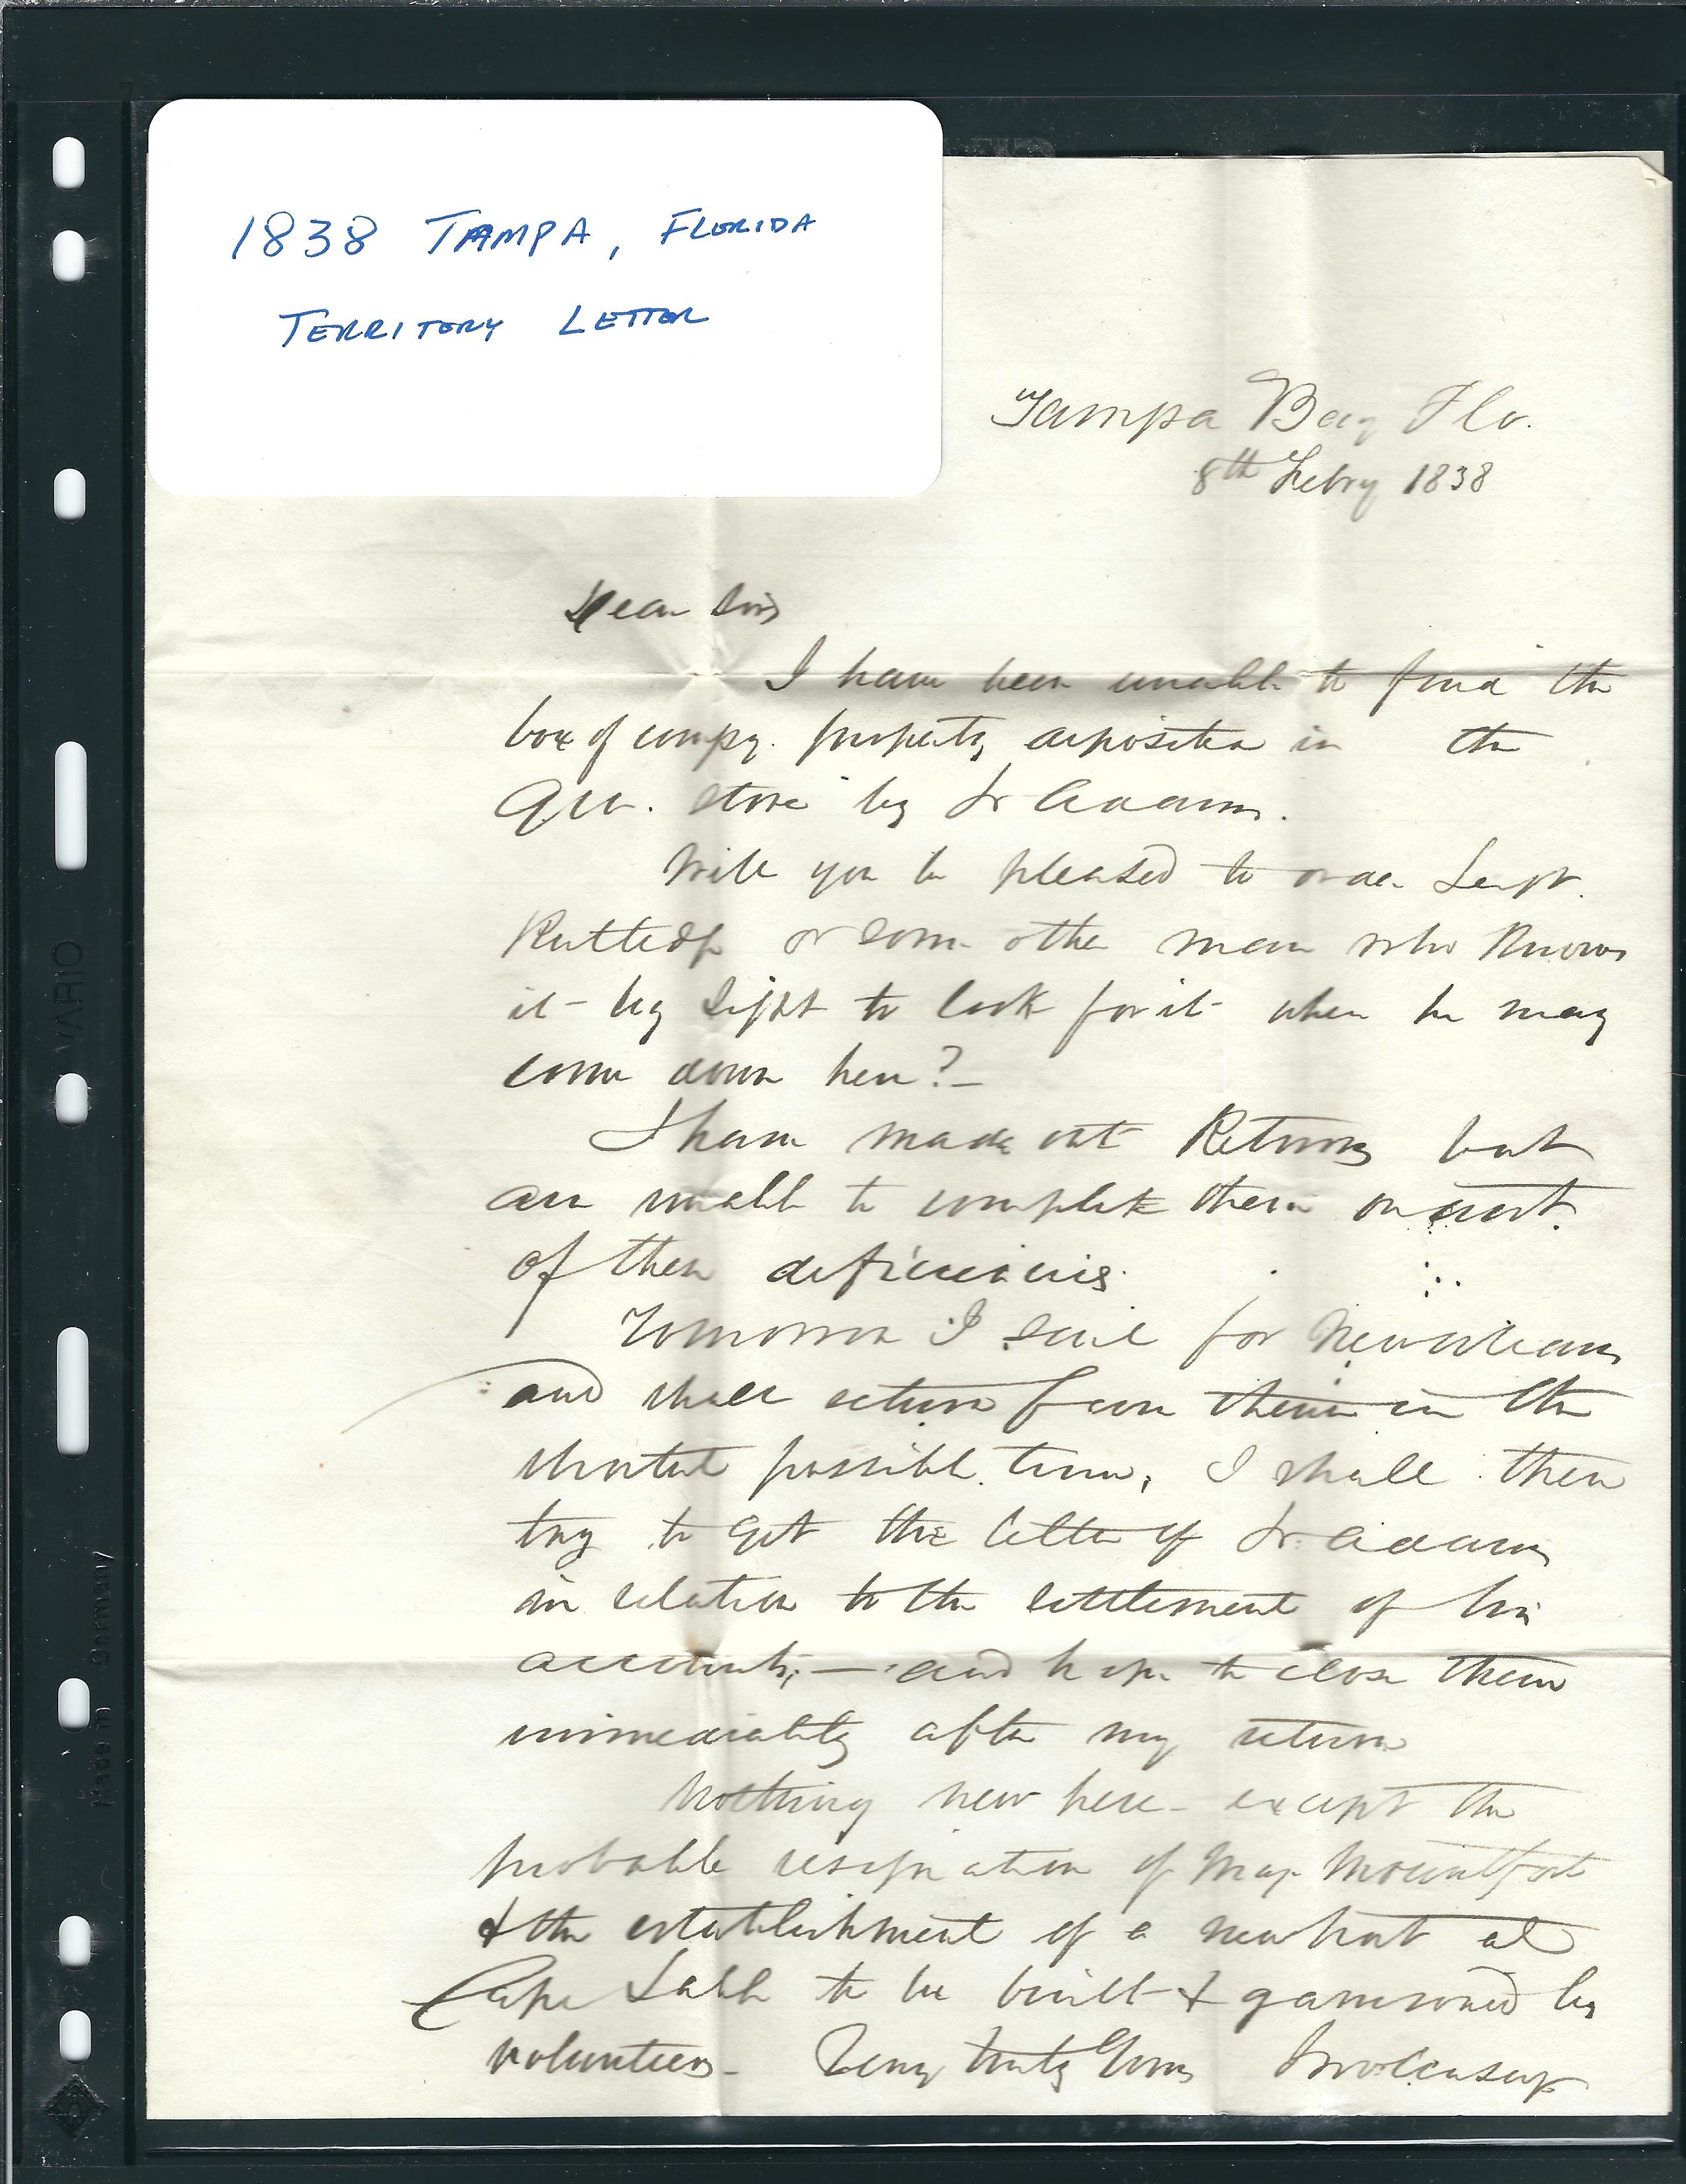 1838 TAMPA, FLORIDA
TERRITORY LETTER
Tampa Bay Flo.
8th Febry 1838
Dear Sir
I have been unable to find the
box of compy. property deposited in the
Qr. store by Lt Adams.
Will you be pleased to order Sergt.
or some other man who knows
it by sight to look for it when he may
come down here? —
I have made out Returns but
am unable to complete them on acct.
of these deficiencies.
Tomorrow I sail for New Orleans
and shall return from there in the
shortest possible time, I shall then
try to get the letter of Lt. Adams
in relation to the settlement of his
accounts; — and hope to close them
immediately after my return
Nothing new here - except the
probable resignation of Maj. Mountfort
& the establishment of a new post at
Cape Sable to be built & garrisoned by
volunteers - Very truly Yours
VARIO
Made in Germany